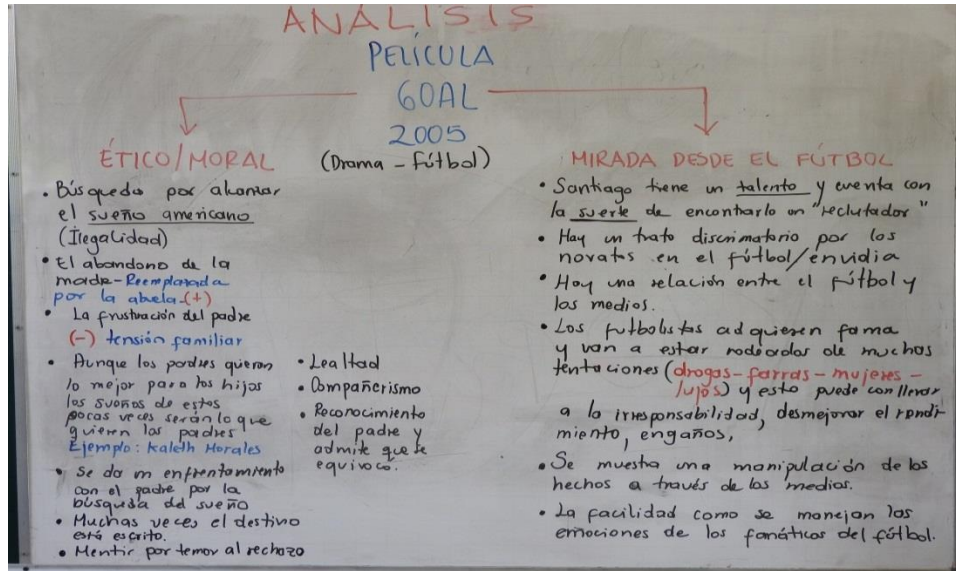 ANÁLISIS
PELÍCULA
GOAL
2005
(Drama - Fútbol)
ÉTICO/MORAL
• Búsqueda por alcanzar
el sueño americano
(Ilegalidad)
• El abandono de la
madre - Reemplazada
por la abuela (+)
• La frustración del padre
(-) tensión familiar
• Aunque los padres quieren
lo mejor para los hijos
los sueños de estos
pocas veces serán lo que
quieren los padres
Ejemplo: Kaleth Morales
• Se da un enfrentamiento
con el padre por la
búsqueda del sueño
• Muchas veces el destino
está escrito.
• Mentir por temor al rechazo
• Lealtad
• Compañerismo
• Reconocimiento
del padre y
admite que se
equivocó.
MIRADA DESDE EL FÚTBOL
• Santiago tiene un talento y cuenta con
la suerte de encontrarlo un "reclutador"
• Hay un trato discrimatorio por los
novatos en el fútbol/envidia
• Hay una relación entre el fútbol y
los medios.
• Los futbolistas adquieren fama
y van a estar rodeados de muchas
tentaciones (drogas - farras - mujeres -
lujos) y esto puede conllevar
a la irresponsabilidad, desmejorar el rendi
miento, engaños,
• Se muestra una manipulación de los
hechos a través de los medios.
• La facilidad como se manejan las
emociones de los fanáticos del fútbol.